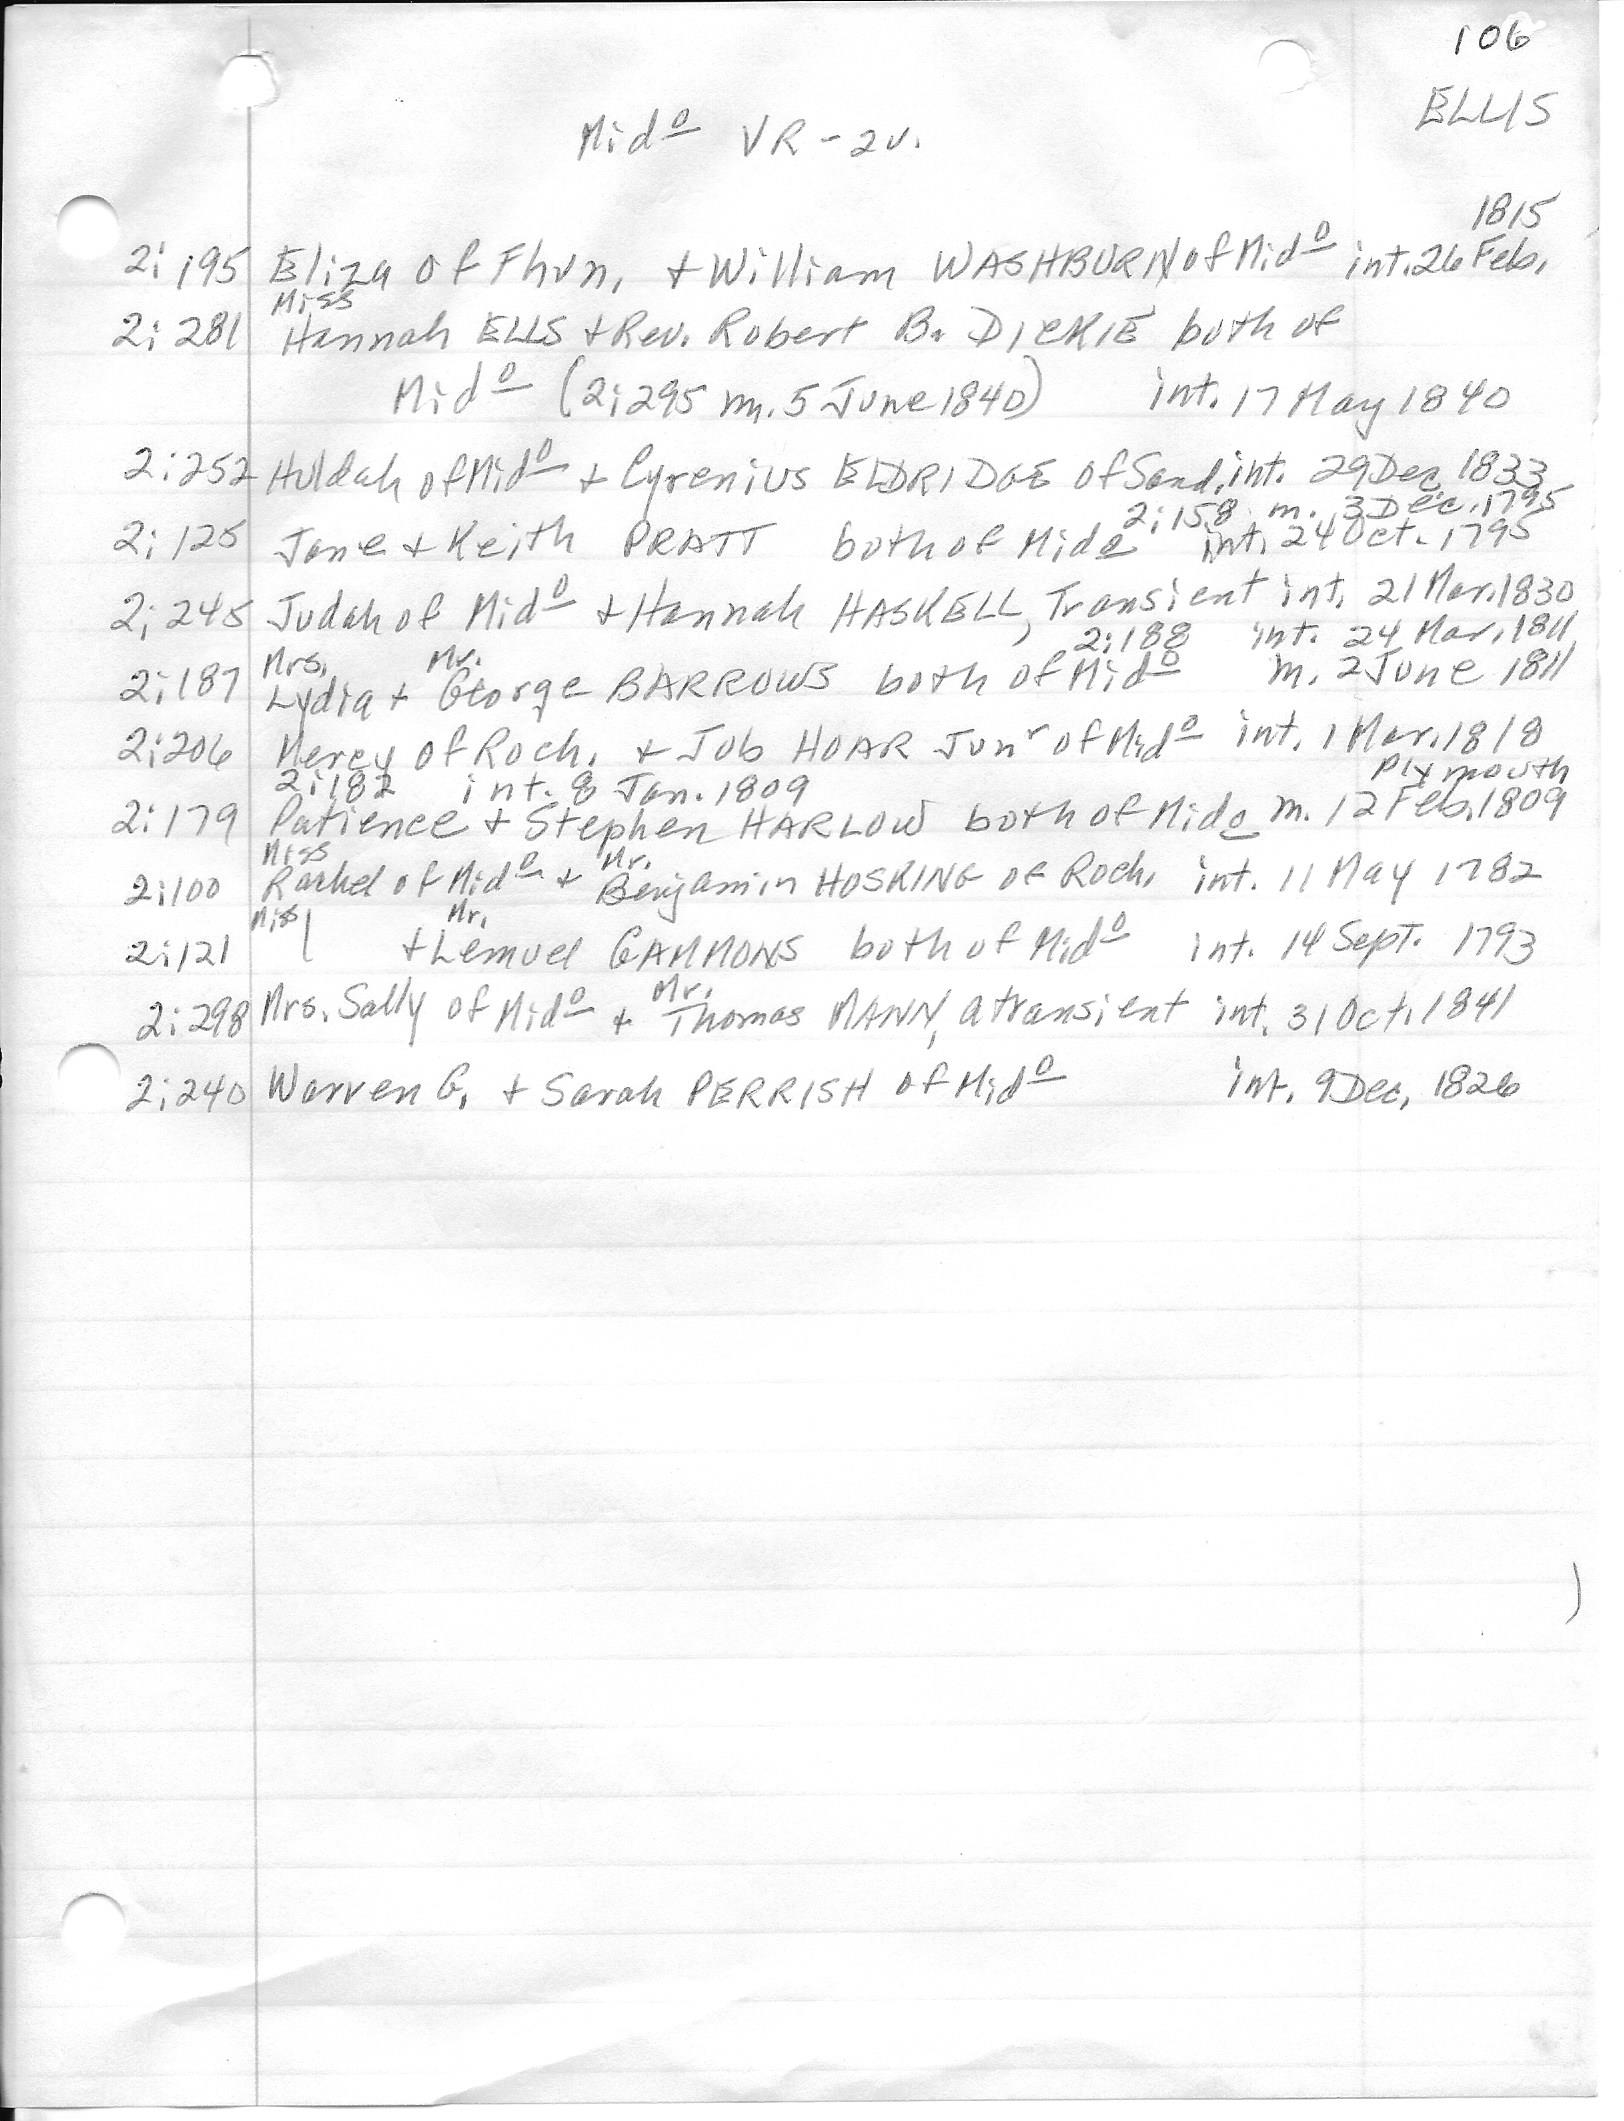 106
ELLIS
Mido VR - 2v.
1815
2:195 Eliza of Fhvn, + William WASHBURN of Mido int. 26 Feb.
Miss
2:281 Hannah ELLS + Rev. Robert B. DICKIE both of
Mido (2:295 m. 5 June 1840) int. 17 May 1840
2:252 Huldah of Mido + Cyrenius ELDRIDGE of Sand. int. 29 Dec. 1833
2:158 m. 3 Dec. 1795
2:125 Jane + Keith PRATT both of Mido int. 24 Oct. 1795
2:245 Judah of Mido + Hannah HASKELL, Transient int. 21 Mar. 1830
2:188 int. 24 Mar. 1811
Mrs. Mr.
2:187 Lydia + George BARROWS both of Mido m. 2 June 1811
2:206 Mercy of Roch. + Job HOAR Junr of Mido int. 1 Mar. 1818
2:182 int. 8 Jan. 1809 Plymouth
2:179 Patience + Stephen HARLOW both of Mido m. 12 Feb. 1809
Miss Mr.
2:100 Rachel of Mido + Benjamin HOSKING of Roch. int. 11 May 1782
Miss Mr.
2:121 | + Lemuel GAMMONS both of Mido int. 14 Sept. 1793
Mr.
2:298 Mrs. Sally of Mido + Thomas MANN, a transient int. 31 Oct. 1841
2:240 Warren G. + Sarah PERRISH of Mido int. 9 Dec. 1826